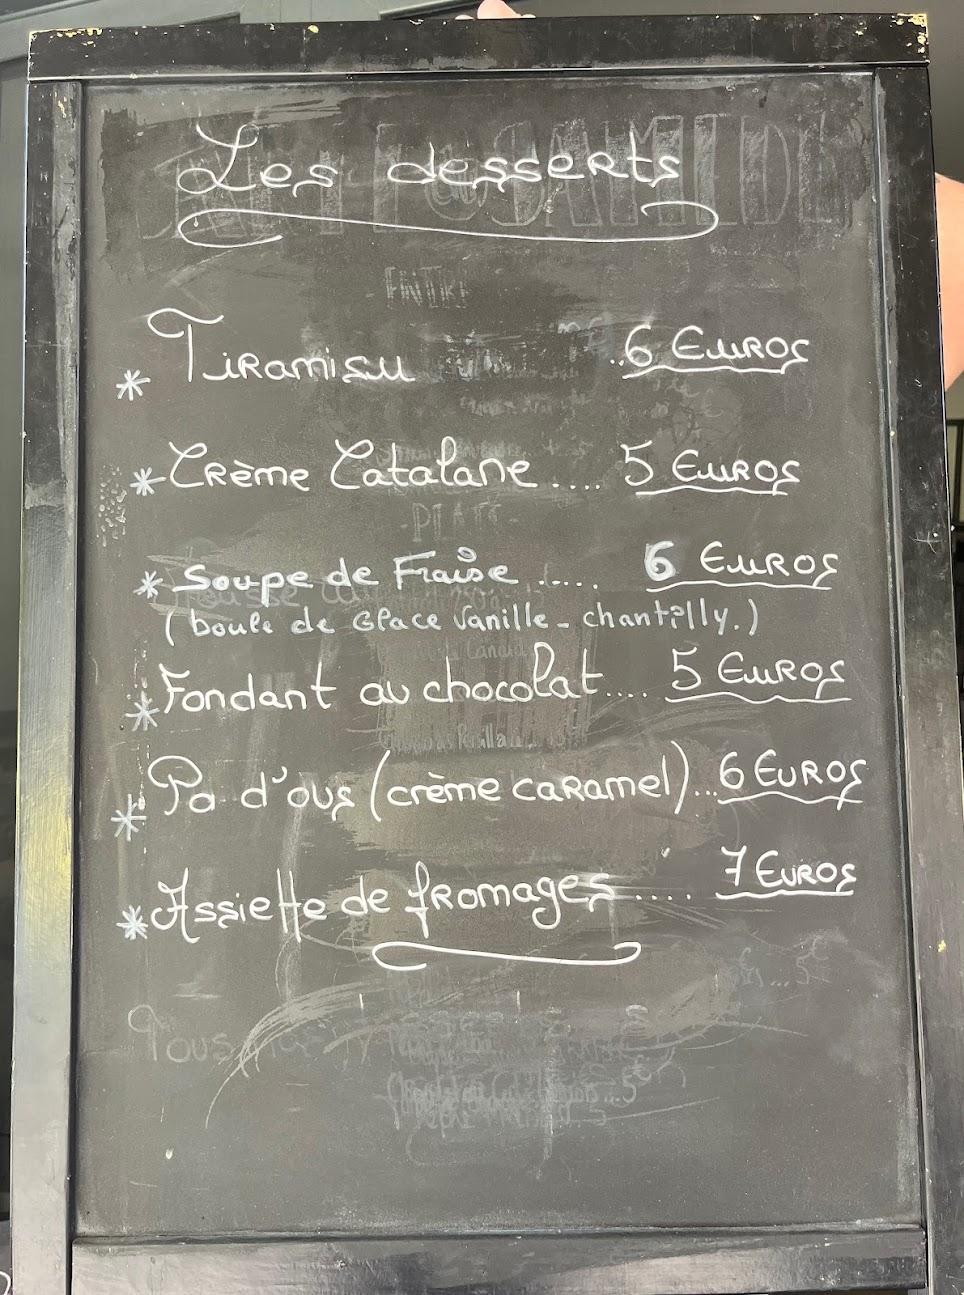 Les desserts
ENTRE
* Tiramisu ..6 Euros
* Crème Catalane .... 5 Euros
PLATS
* Soupe de Fraise ..... 6 Euros
(boule de Glace Vanille - chantilly.)
* Fondant au chocolat.... 5 Euros
* Pa d'ous (crème caramel)...6 Euros
* Assiette de fromages.... 7 Euros